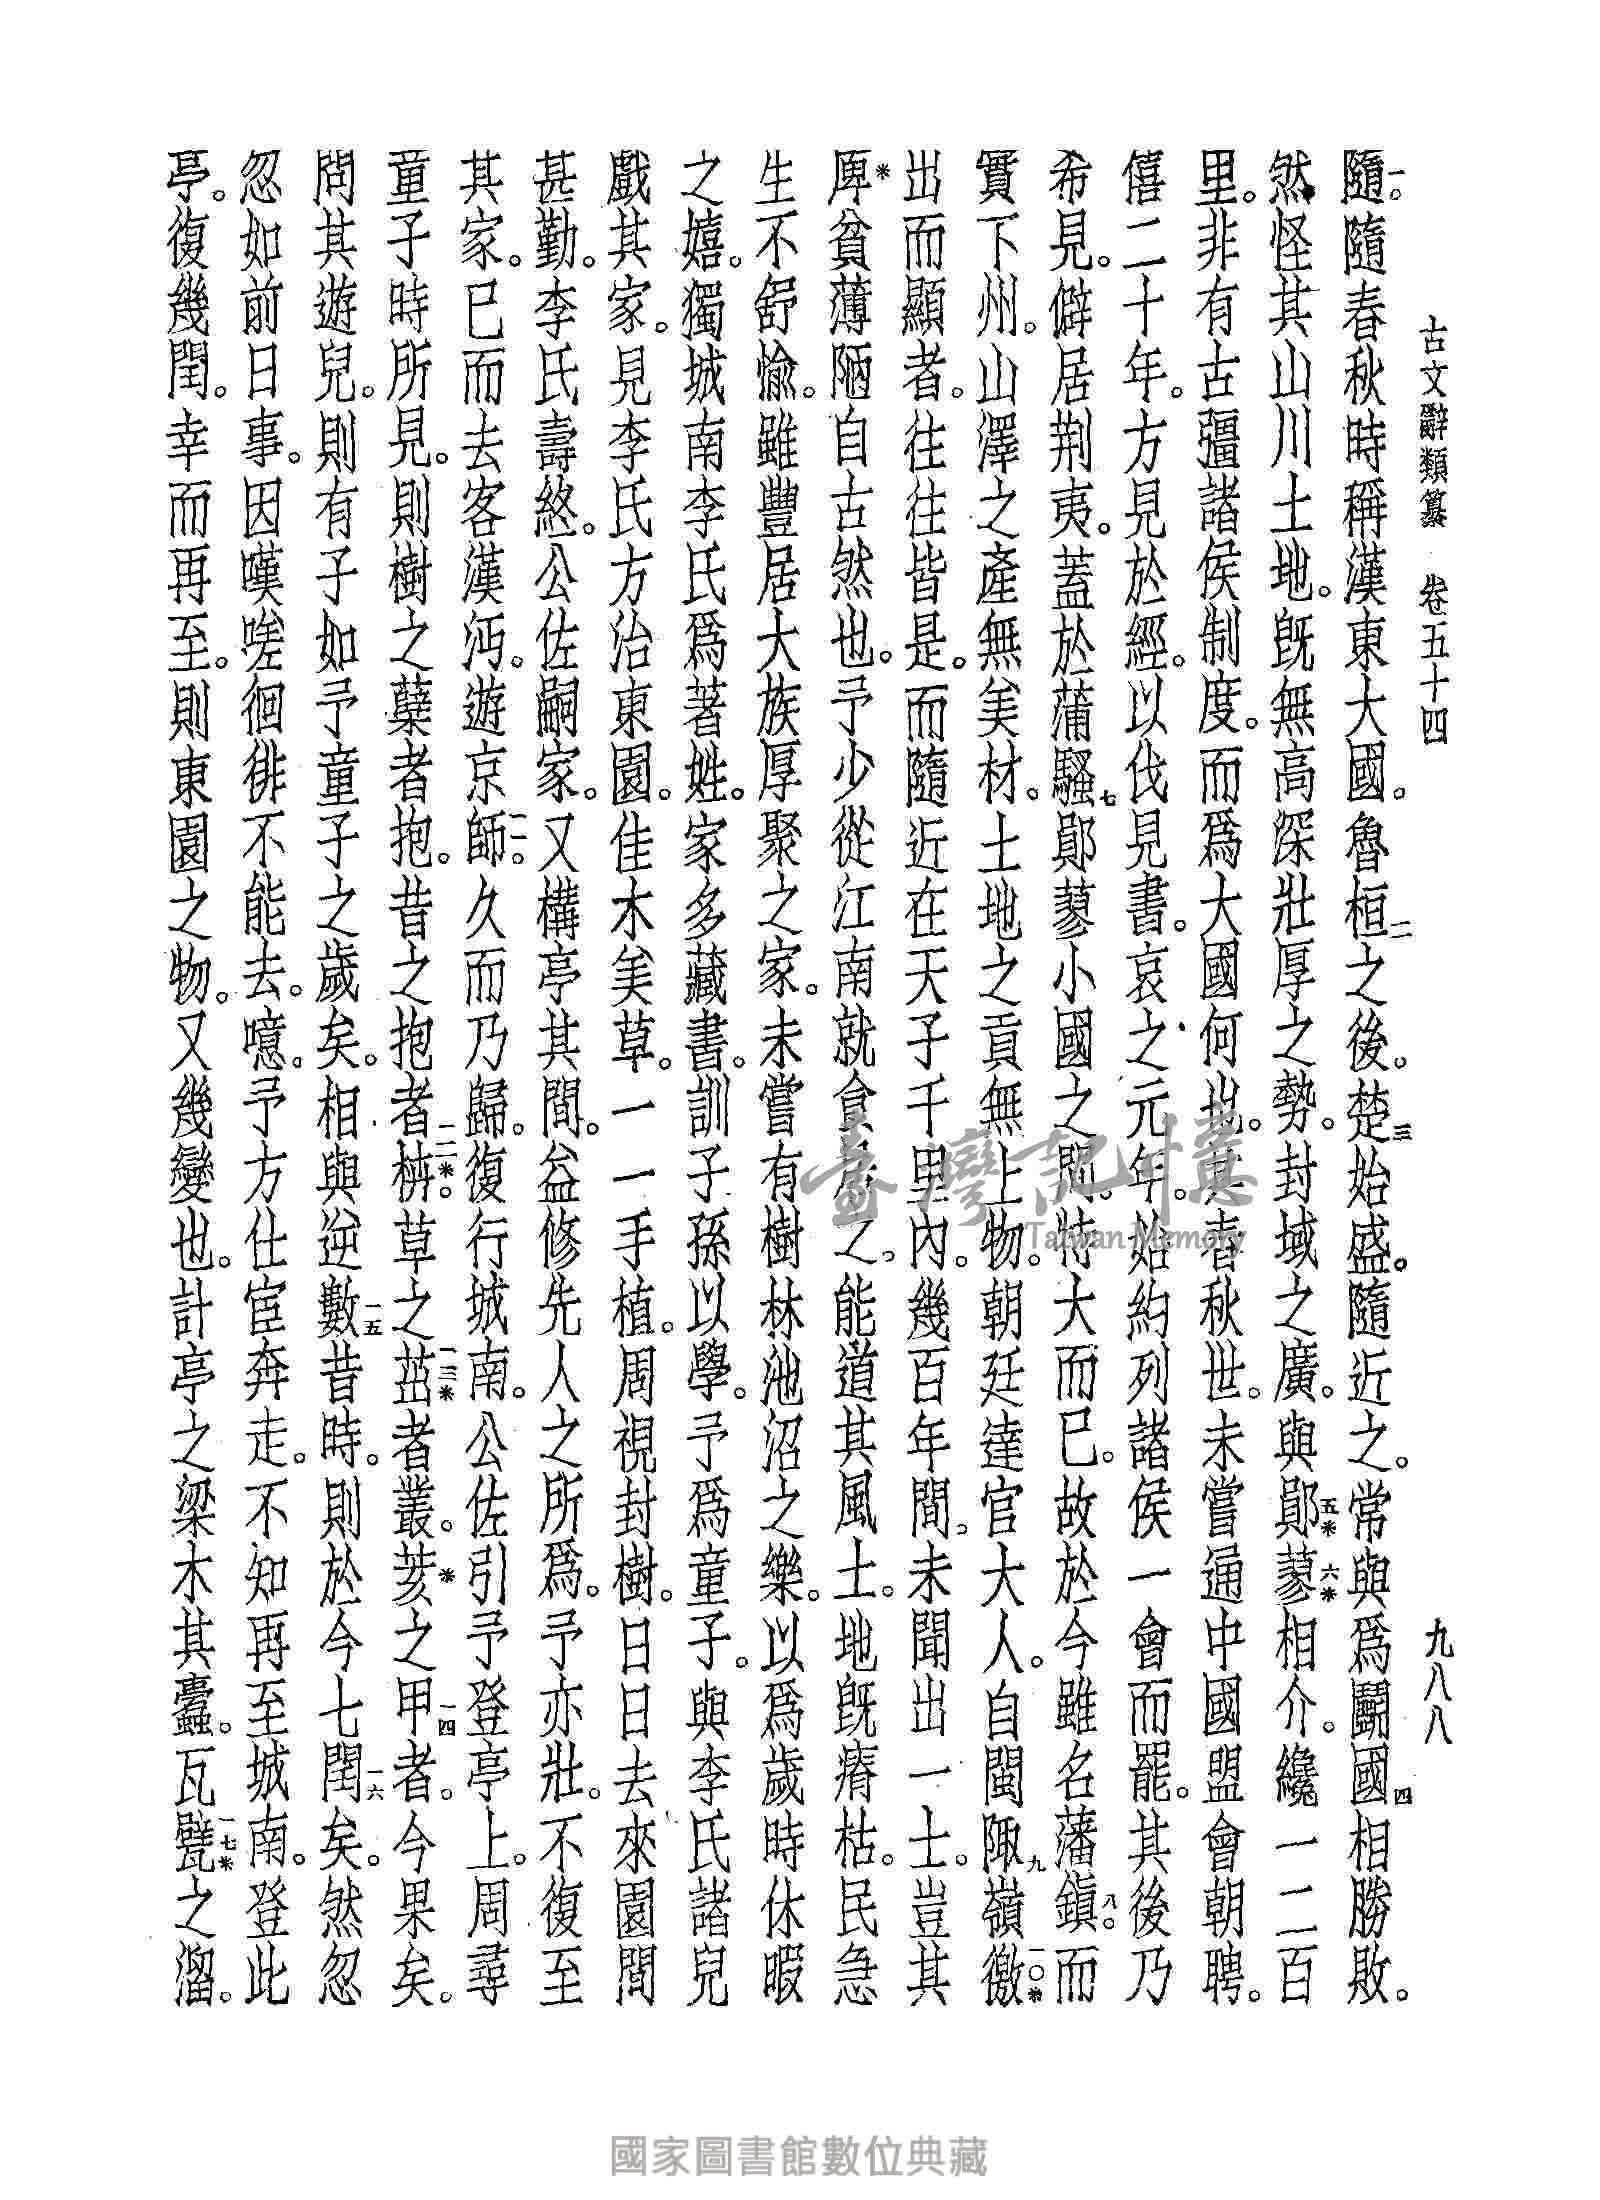 古文辭類纂 卷五十四 九八八
隨一。隨春秋時稱漢東大國。魯桓二之後。楚三始盛。隨近之。常與爲鬬國四相勝敗。
然怪其山川土地。旣無高深壯厚之勢。封域之廣。與鄖五※蓼六※相介。纔一二百
里。非有古彊諸侯制度。而爲大國何也。其春秋世。未嘗通中國盟會朝聘。
僖二十年。方見於經。以伐見書。哀之元年。始約列諸侯一會而罷。其後乃
希見。僻居荆夷。蓋於蒲騷七鄖蓼小國之間。特大而已。故於今雖名藩鎭八。而
實下州。山澤之產無美材。土地之貢無上物。朝廷達官大人。自閩陬九嶺徼一〇※
出而顯者。往往皆是。而隨近在天子千里內。幾百年間。未聞出一士。豈其
庳※貧薄陋自古然也。予少從江南就食居之。能道其風土。地旣瘠枯。民急
生不舒愉。雖豐居大族厚聚之家。未嘗有樹林池沼之樂。以爲歲時休暇
之嬉。獨城南李氏爲著姓。家多藏書。訓子孫以學。予爲童子。與李氏諸兒
戲其家。見李氏方治東園。佳木美草。一一手植。周視封樹。日日去來園間
甚勤。李氏壽終。公佐嗣家。又構亭其間。益修先人之所爲。予亦壯。不復至
其家。已而去客漢沔。遊京師一一。久而乃歸。復行城南。公佐引予登亭上。周尋
童子時所見。則樹之蘖者抱。昔之抱者枿一二※。草之茁一三※者叢。荄※之甲一四者。今果矣。
問其遊兒。則有子如予童子之歲矣。相與逆數一五昔時。則於今七閏一六矣。然忽
忽如前日事。因嘆嗟徊徘不能去。噫。予方仕宦奔走。不知再至城南。登此
亭。復幾閏。幸而再至。則東園之物。又幾變也。計亭之梁木其蠹。瓦甓一七※之溜。
臺灣記憶
Taiwan Memory
國家圖書館數位典藏